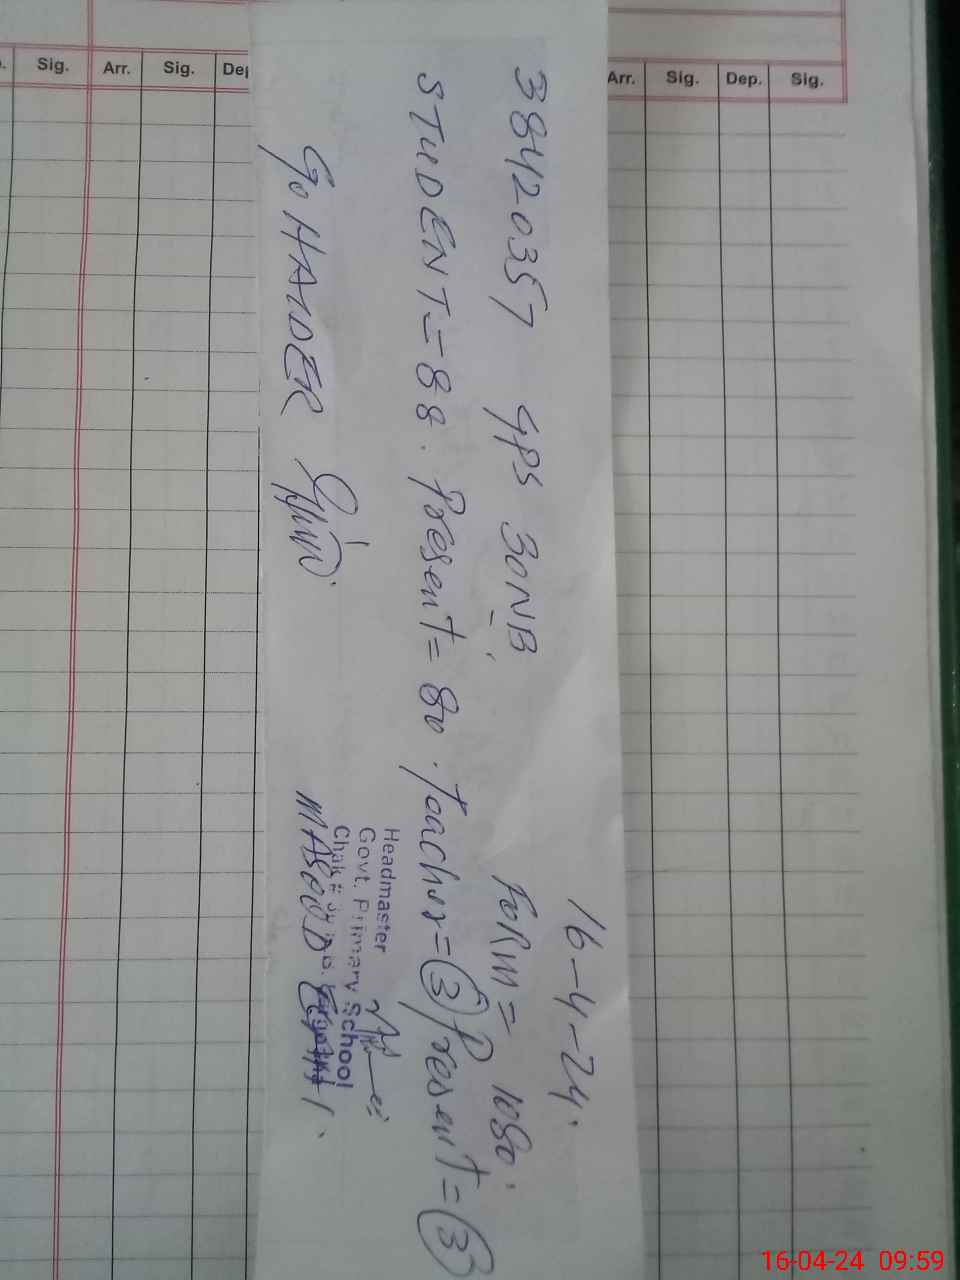 Sig. Arr. Sig. Arr. Sig. Dep. Sig.
16-4-24.
38420357 GPS 30NB FORM = 1080.
STUDENT = 88. Present = 80. Teacher = 3 Present = 3
HAIDER
Headmaster
Govt. Primary School
Chak #
MASOOD
16-04-24 09:59